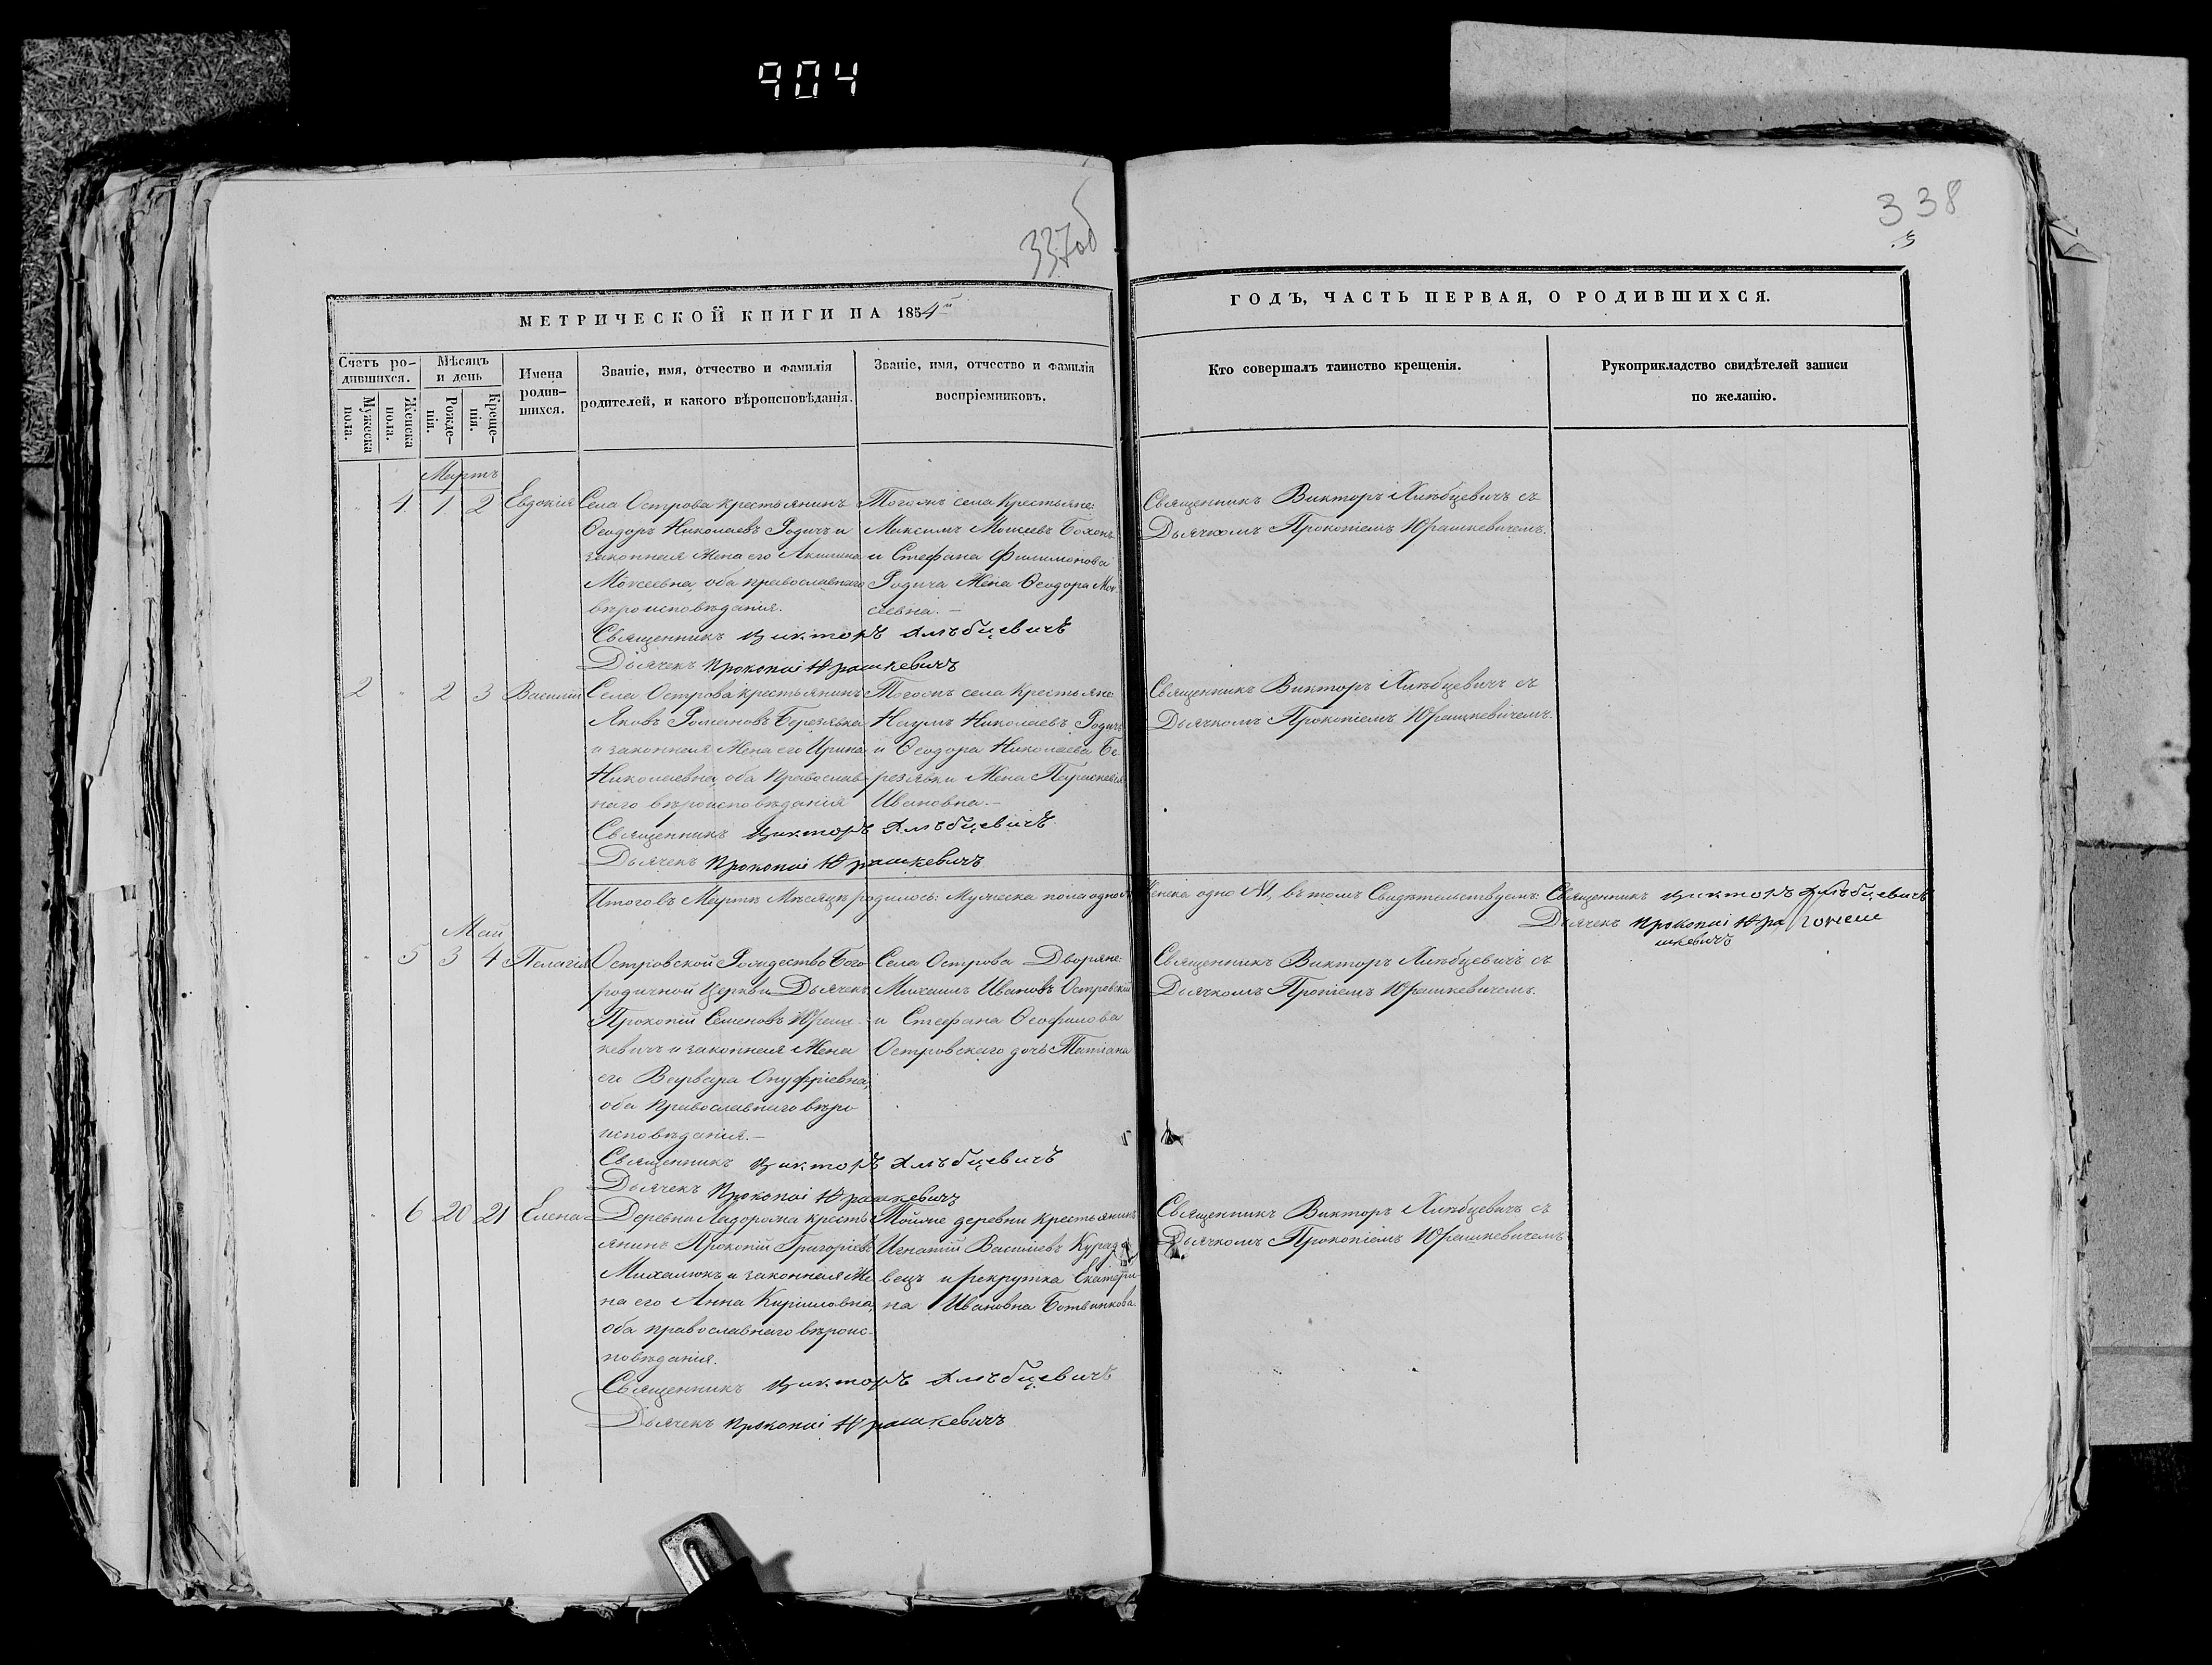 904
337об
338
3
МЕТРИЧЕСКОЙ КНИГИ НА 1854й
ГОДЪ, ЧАСТЬ ПЕРВАЯ, О РОДИВШИХСЯ.
Счетъ ро-
дившихся.
Мужеска
пола.
Женска
пола.
Мѣсяцъ
и день
Рожде-
нія.
Креще-
нія.
Имена
родив-
шихся.
Званіе, имя, отчество и фамилія
родителей, и какого вѣроисповѣданія.
Званіе, имя, отчество и фамилія
воспріемниковъ.
Кто совершалъ таинство крещенія.
Рукоприкладство свидѣтелей записи
по желанію.
Мартъ
4 1 2 Евдокія
Села Острова крестьянинъ
Ѳеодоръ Николаевъ Родичъ и
законная жена его Акилина
Моисеевна, оба православнаго
вѣроисповѣданія.
Тогожъ села крестьяне:
Максимъ Моисеевъ Бохонъ
и Стефана Филимонова
Родича жена Ѳеодора Мои-
сеевна.-
Священникъ Викторъ Хлѣбцевичъ
Дьячекъ Прокопій Юрашкевичъ
Священникъ Викторъ Хлѣбцевичъ съ
Дьячкомъ Прокопіемъ Юрашкевичемъ.
2 2 3 Василій
Села Острова крестьянинъ
Яковъ Романовъ Березявка
и законная жена его Ирина
Николаевна, оба православ-
наго вѣроисповѣданія
Тогожъ села крестьяне
Наумъ Николаевъ Родичъ
и Ѳеодора Николаева Бе-
резявки жена Параскевія
Ивановна.-
Священникъ Викторъ Хлѣбцевичъ
Дьячекъ Прокопій Юрашкевичъ
Священникъ Викторъ Хлѣбцевичъ съ
Дьячкомъ Прокопіемъ Юрашкевичемъ.
Итого въ Мартѣ мѣсяцѣ родилось: Мужеска пола одно Женска одно №1, въ томъ Свидѣтельствуемъ: Священникъ Викторъ Хлѣбцевичъ
Дьячекъ Прокопій Юра
шкевичъ
Май
5 3 4 Пелагія
Островской Рождество Бого-
родичной Церкви Дьячекъ
Прокопій Семеновъ Юраш-
кевичъ и законная жена
его Варвара Онуфріевна,
оба православнаго вѣро
исповѣданія.-
Села Острова Дворяне
Михаилъ Ивановъ Островскій
и Стефана Ѳеофилова
Островскаго дочь Татіана
Священникъ Викторъ Хлѣбцевичъ
Дьячекъ Прокопій Юрашкевичъ
Священникъ Викторъ Хлѣбцевичъ съ
Дьячкомъ Пропіемъ Юрашкевичемъ.
6 20 21 Елена
Деревни Лядорожа кресть-
янинъ Прокопій Григоріевъ
Михалюкъ и законная же-
на его Анна Кирилловна,
оба православнаго вѣроис-
повѣданія.
Тойже деревни крестьянинъ
Игнатій Василіевъ
вецъ и рекрутка Екатери-
на Ивановна Ботвинкова.
Священникъ Викторъ Хлѣбцевичъ
Дьячекъ Прокопій Юрашкевичъ
Священникъ Викторъ Хлѣбцевичъ съ
Дьячкомъ Прокопіемъ Юрашкевичемъ